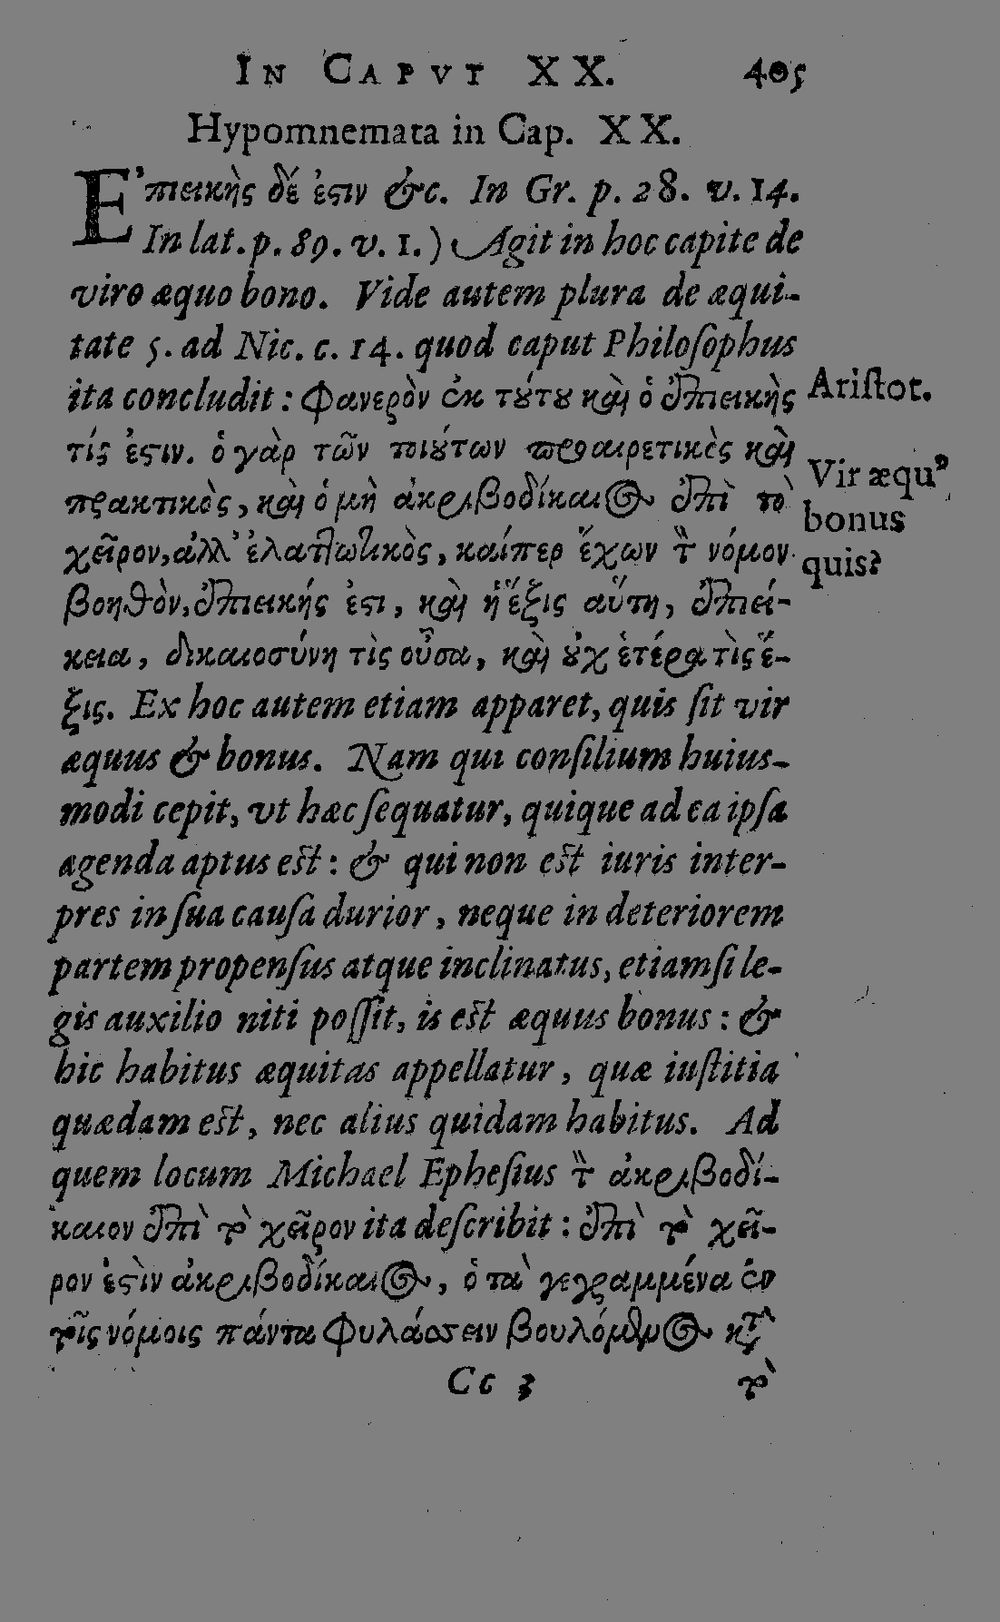 IN CAPVT XX. 405
Hypomnemata in Cap. XX.
Ἐπιεικὴς δέ ἐϛιν &c. In Gr. p. 28. v. 14.
In lat. p. 89. v. 1.) Agit in hoc capite de
viro æquo bono. Vide autem plura de æqui-
tate 5. ad Nic. c. 14. quod caput Philoſophus
ita concludit: Φανερὸν ἐκ τȣ́τȣ καὶ ὁ ἐπιεικὴς
Ariſtot.
τίς ἐϛιν. ὁ γὰρ τῶν τοιȣ́των προαιρετικὸς καὶ
Vir æquꝰ
πρακτικὸς, καὶ ὁ μὴ ἀκριβοδίκαιος ἐπὶ τὸ
bonus
χεῖρον, ἀλλ᾽ ἐλαττωτικὸς, καίπερ ἔχων τὸν νόμον
quis?
βοηθὸν, ἐπιεικής ἐϛι, καὶ ἡ ἕξις αὕτη, ἐπιεί-
κεια, δικαιοσύνη τὶς οὖσα, καὶ ȣ̓χ ἑτέρα τὶς ἕ-
ξις. Ex hoc autem etiam apparet, quis ſit vir
æquus & bonus. Nam qui conſilium huius-
modi cepit, vt hæc ſequatur, quique ad ea ipſa
agenda aptus eſt: & qui non eſt iuris inter-
pres in ſua cauſa durior, neque in deteriorem
partem propenſus atque inclinatus, etiamſi le-
gis auxilio niti poſſit, is eſt æquus bonus: &
hic habitus æquitas appellatur, quæ iuſtitia
quædam eſt, nec alius quidam habitus. Ad
quem locum Michael Epheſius τὸν ἀκριβοδί-
καιον ἐπὶ τὸ χεῖρον ita deſcribit: ἐπὶ τὸ χεῖ-
ρον ἐϛὶν ἀκριβοδίκαιος, ὁ τὰ γεγραμμένα ἐν
τοῖς νόμοις πάντα φυλάσσειν βουλόμενος κατὰ
Cc 3 τὸ